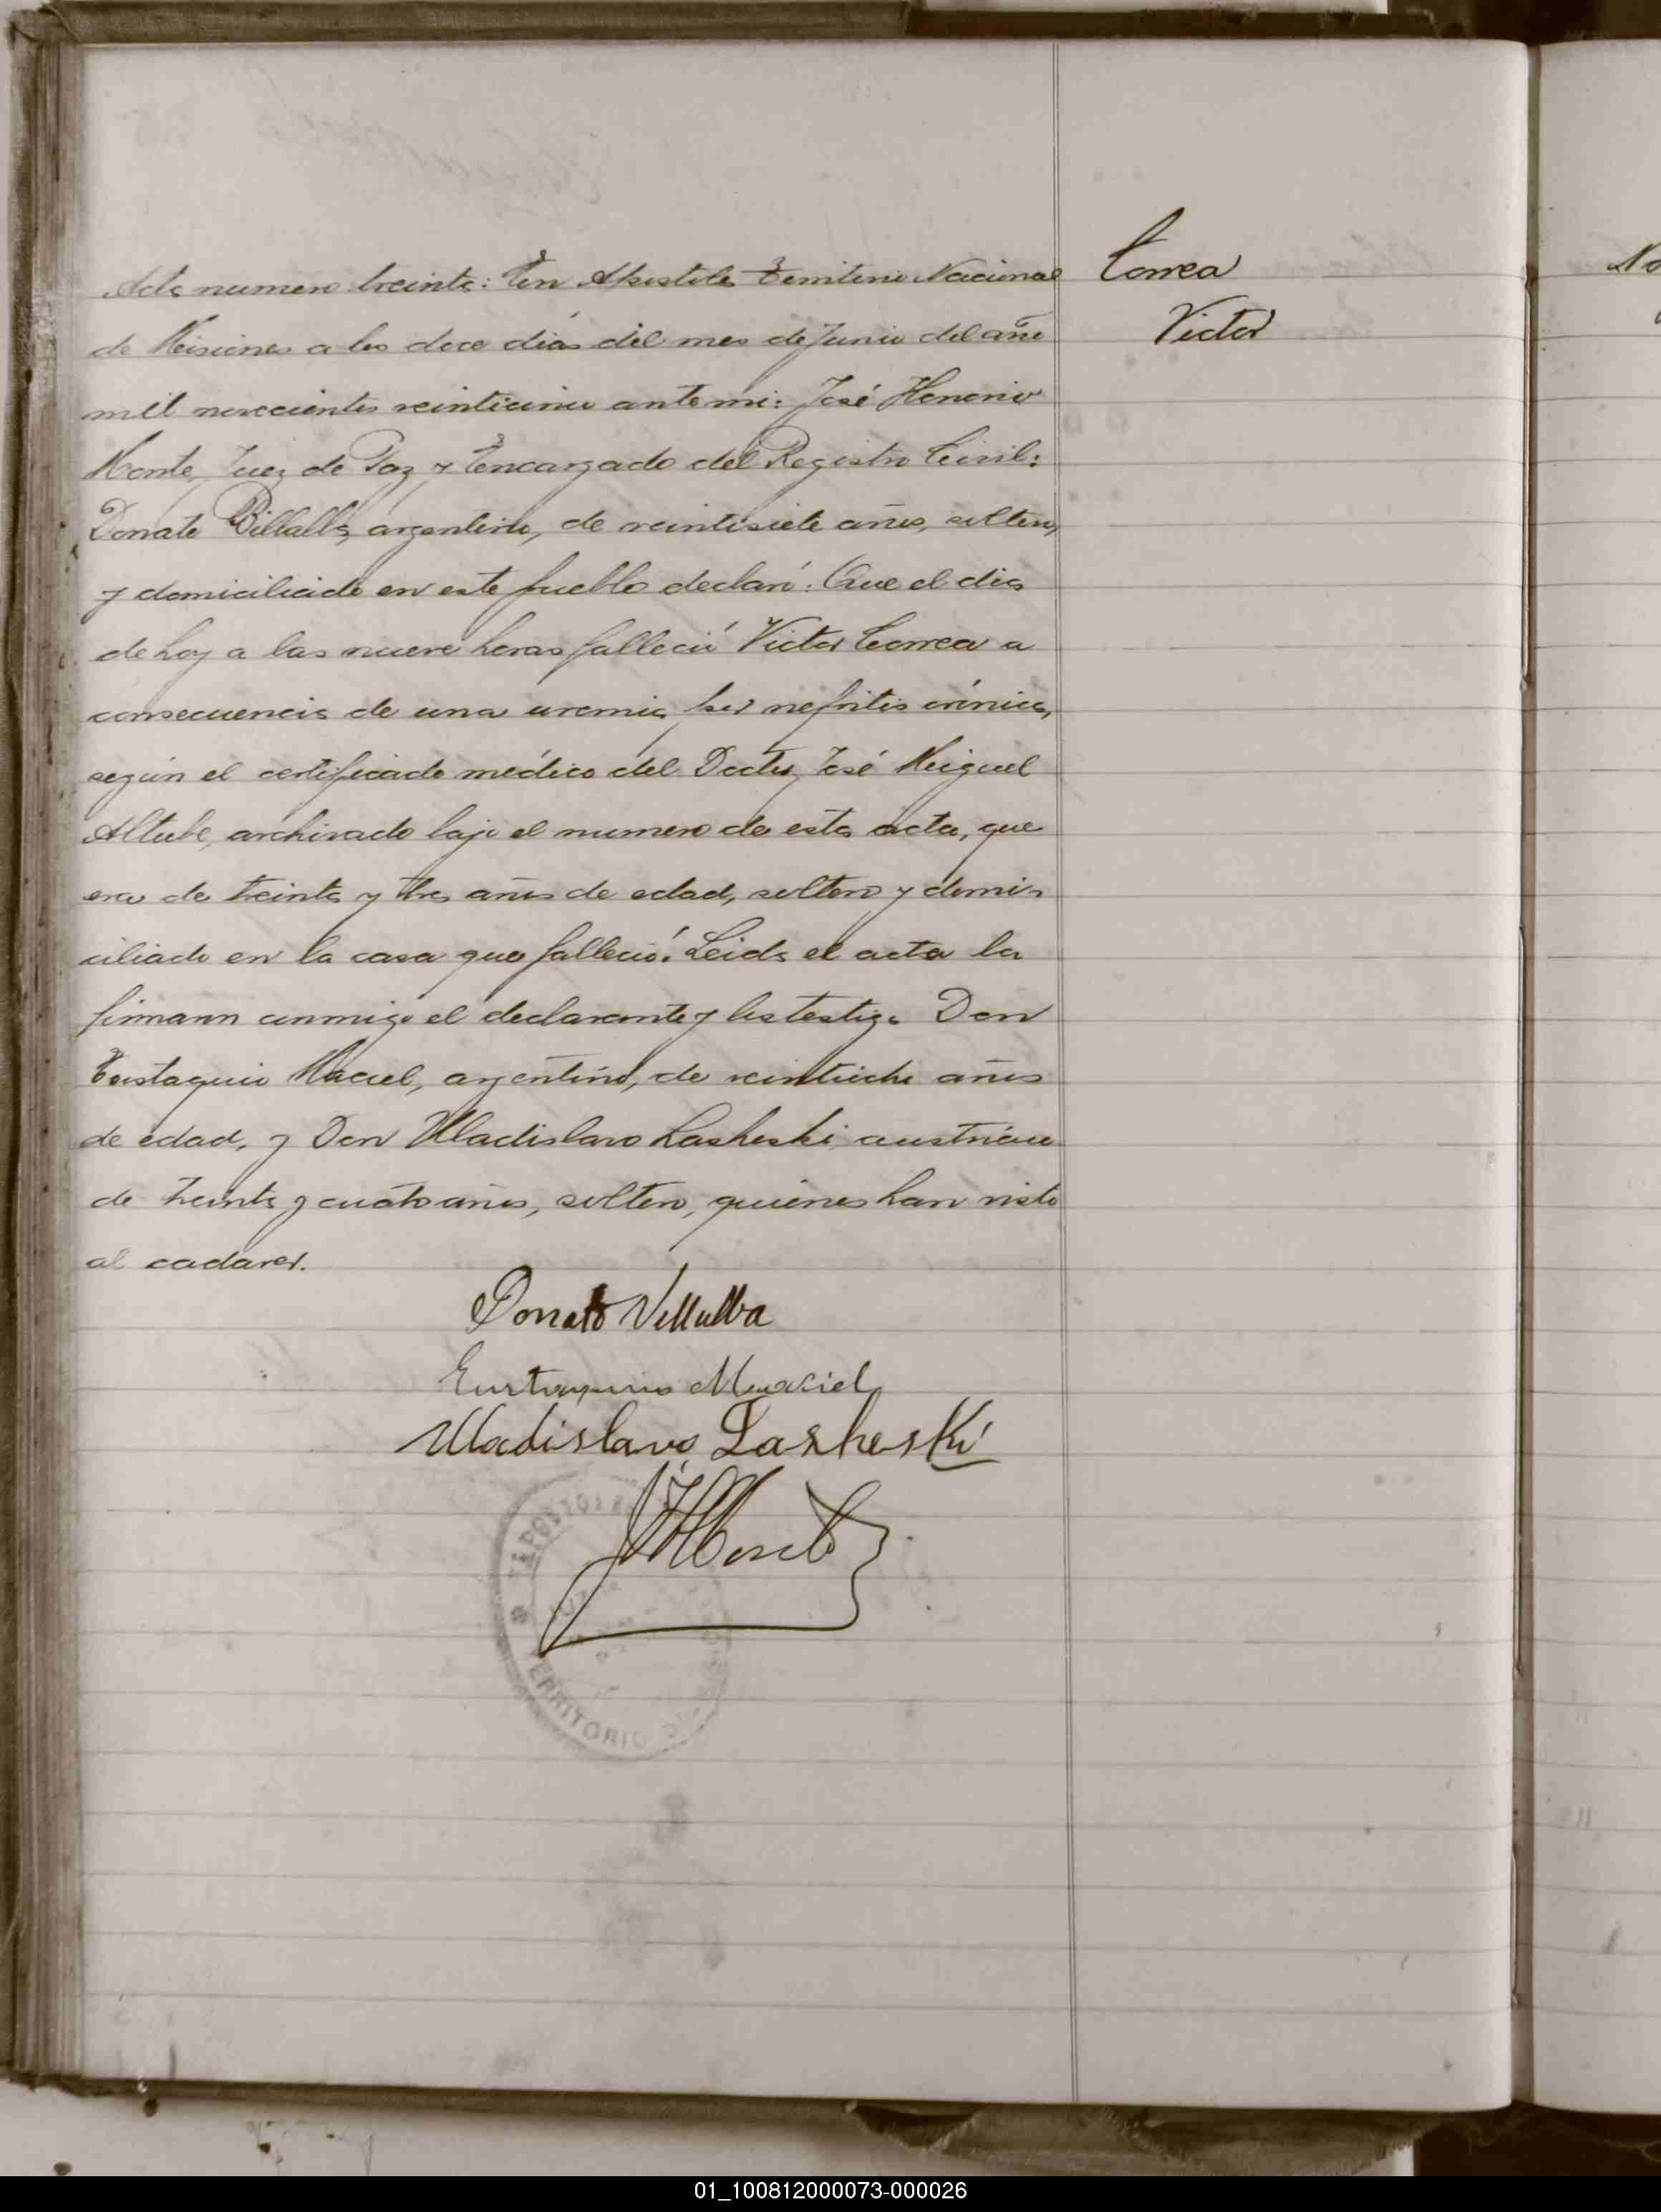 Correa
Victor
Acta numero treinta: En Apostoles Territorio Nacional
de Misiones a los doce dias del mes de Junio del año
mil novecientos veinticinco ante mi: José Honorio
Monte, Juez de Paz y Encargado del Registro Civil:
Donato Billalba, argentino, de veintisiete años, soltero,
y domiciliado en este pueblo declaró: Que el dia
de hoy a las nueve horas falleció Victor Correa a
consecuencia de una uremia por nefritis crónica,
según el certificado médico del Doctor José Miguel
Altube, archivado bajo el numero de esta acta, que
era de treinta y tres años de edad, soltero y domi-
ciliado en la casa que falleció. Leida el acta la
firmaron conmigo el declarante y los testigos Don
Eustaquio Maciel, argentino, de veintiocho años
de edad, y Don Uladislavo Lasheski, austriaco
de treinta y cuatro años, soltero, quienes han visto
al cadaver.
Donato Villalba
Eustaquio Maciel
Uladislavo Lasheski
JHMonte
APOSTOLES
TERRITORIO DE
01_100812000073-000026